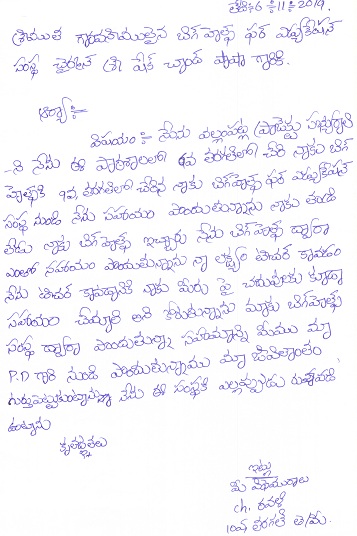 తేది:- 6-11-2019.
శ్రీయుత గౌరవనీయులైన బిగ్ హెల్ప్ ఫర్ ఎడ్యుకేషన్
సంస్థ చైర్మన్ శ్రీ షేక్ చాంద్ పాషా గారికి.
ఆర్యా :-
విషయం :- నేను వల్లంపట్ల ప్రాజెక్టు విద్యార్థి
- ని నేను ఈ పాఠశాలలో 9వ తరగతిలో చేరి నాకు బిగ్
హెల్ప్‌కి 9వ తరగతిలో చేరిన నాకు బిగ్ హెల్ప్ ఫర్ ఎడ్యుకేషన్
సంస్థ నుండి నేను సహాయం పొందుతున్నాను నాకు తండ్రి
లేడు నాకు బిగ్ హెల్ప్ ఇచ్చారు నేను బిగ్ హెల్ప్ ద్వారా
ఎంతో సహాయం పొందుతున్నాను నా లక్ష్యం టీచర్ కావడం
నేను టీచర్ కావడానికి నాకు మీరు పై చదువులకు కూడా
సహాయం చేయాలి అని కోరుతున్నాను మాకు బిగ్ హెల్ప్
సంస్థ ద్వారా పొందుతున్న సహాయాన్ని మేము మా
P.D గారి నుండి పొందుతున్నాము మా జీవితాంతం
గుర్తుపెట్టుకుంటాను నేను ఈ సంస్థకి ఎల్లప్పుడు రుణపడి
ఉంటాను
కృతజ్ఞతలు
ఇట్లు
మీ విధేయురాలు
ch. రవళి
10వ తరగతి